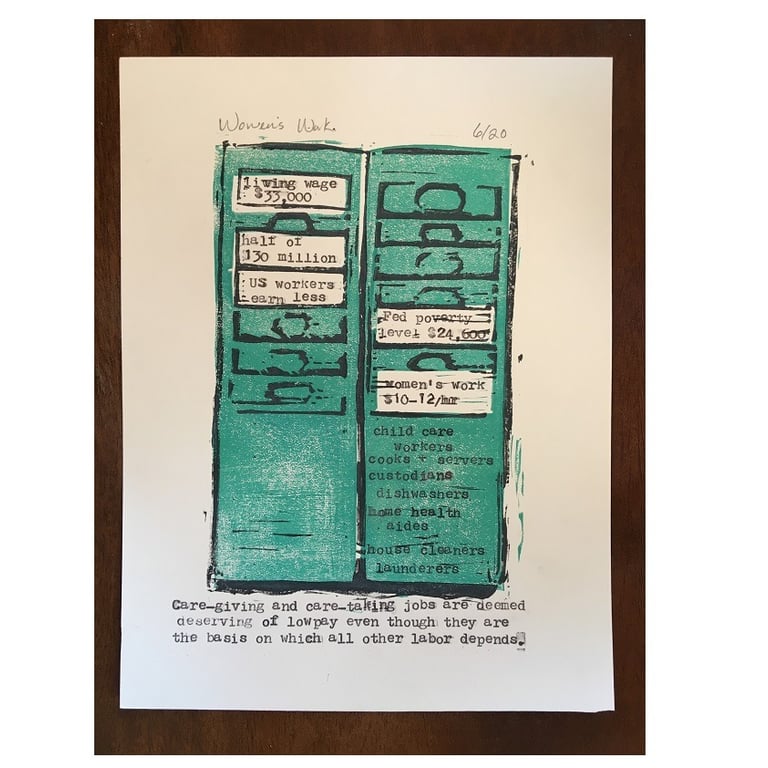 Women's Work
6/20
living wage
$33,000
half of
130 million
US workers
earn less
Fed poverty
level $24,600
women's work
$10-12/hour
child care
workers
cooks + servers
custodians
dishwashers
home health
aides
house cleaners
launderers
Care-giving and care-taking jobs are deemed
deserving of lowpay even though they are
the basis on which all other labor depends.